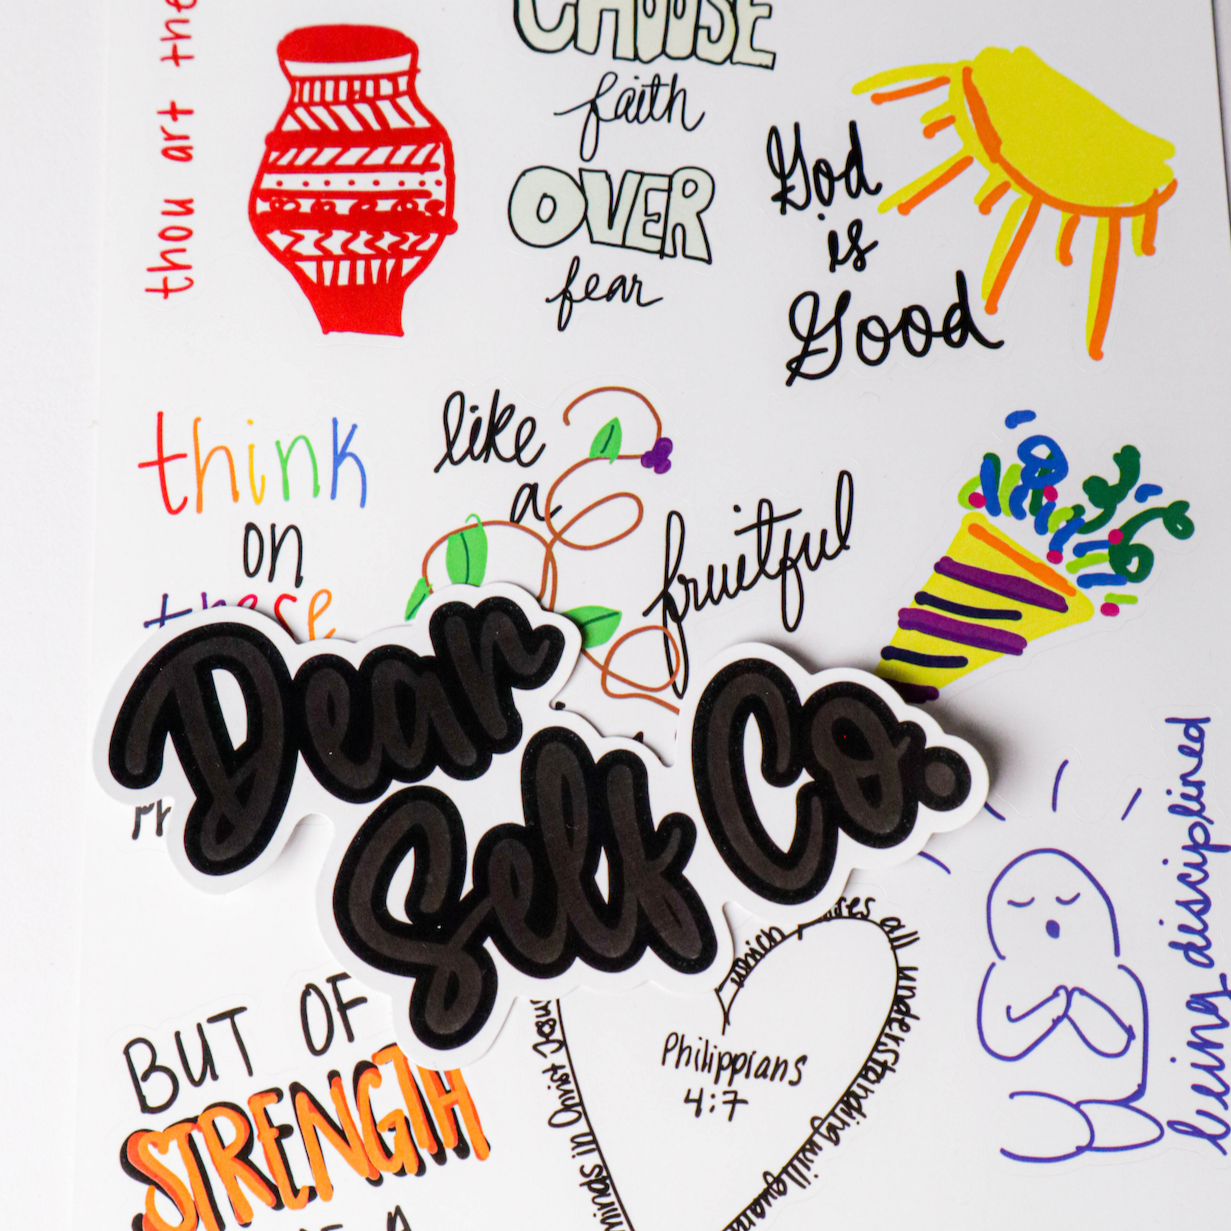 thou art the
CHOOSE
faith
OVER
fear
God
is
Good
think
on
these
like
a
fruitful
Dear
Self Co.
being disciplined
BUT OF
STRENGTH
A
all understanding will guard
minds in Christ Jesus
Philippians
4:7